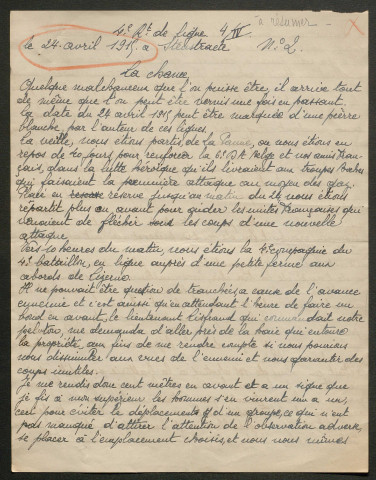 à résumer
4e Rt de ligne 4/IV
le 24 avril 1915 à Steenstraete No 2.
La chance,
Quelque malchanceux que l'on puisse être, il arrive tout
de même que l'on peut être vernis une fois en passant.
La date du 24 avril 1915 peut être marquée d'une pierre
blanche par l'auteur de ces lignes.
La veille, nous étions partis de La Panne, ou nous étions en
repos de 10 jours pour renforcer la 6e D.A. belge et nos amis Fran-
çais, dans la lutte héroïque qu'ils livraient aux troupes Boches
qui faisaient la première attaque au moyen des gaz.
Placé en reserve jusqu'au matin du 24 nous étions
répartit plus en avant pour guider les unités Françaises qui
venaient de fléchir sous les coups d'une nouvelle
attaque.
Vers 10 heures du matin, nous étions la 4e compagnie du
4e bataillon, en ligne auprès d'une petite ferme aux
abords de Lizerne.
Il ne pouvait être question de tranchées, a cause de l'avance
ennemie et c'est ainsi qu'en attendant l'heure de faire un
bond en avant, le lieutenant qui commandait notre
peloton, me demanda d'aller près de la haie qui entoure
la propriété, aux fins de me rendre compte si nous pouvions
nous dissimuler aux vues de l'ennemi et nous garanter des
coups inutiles.
Je me rendis donc cent mètres en avant et a un signe que
je fis a mon supérieur les hommes s'en vinrent un a un,
cect pour éviter le déplacements d'un groupe, ce qui n'eut
pas manqué d'attirer l'attention de l'observation adverse,
se placer à l'emplacement choisis, et nous nous mîmes